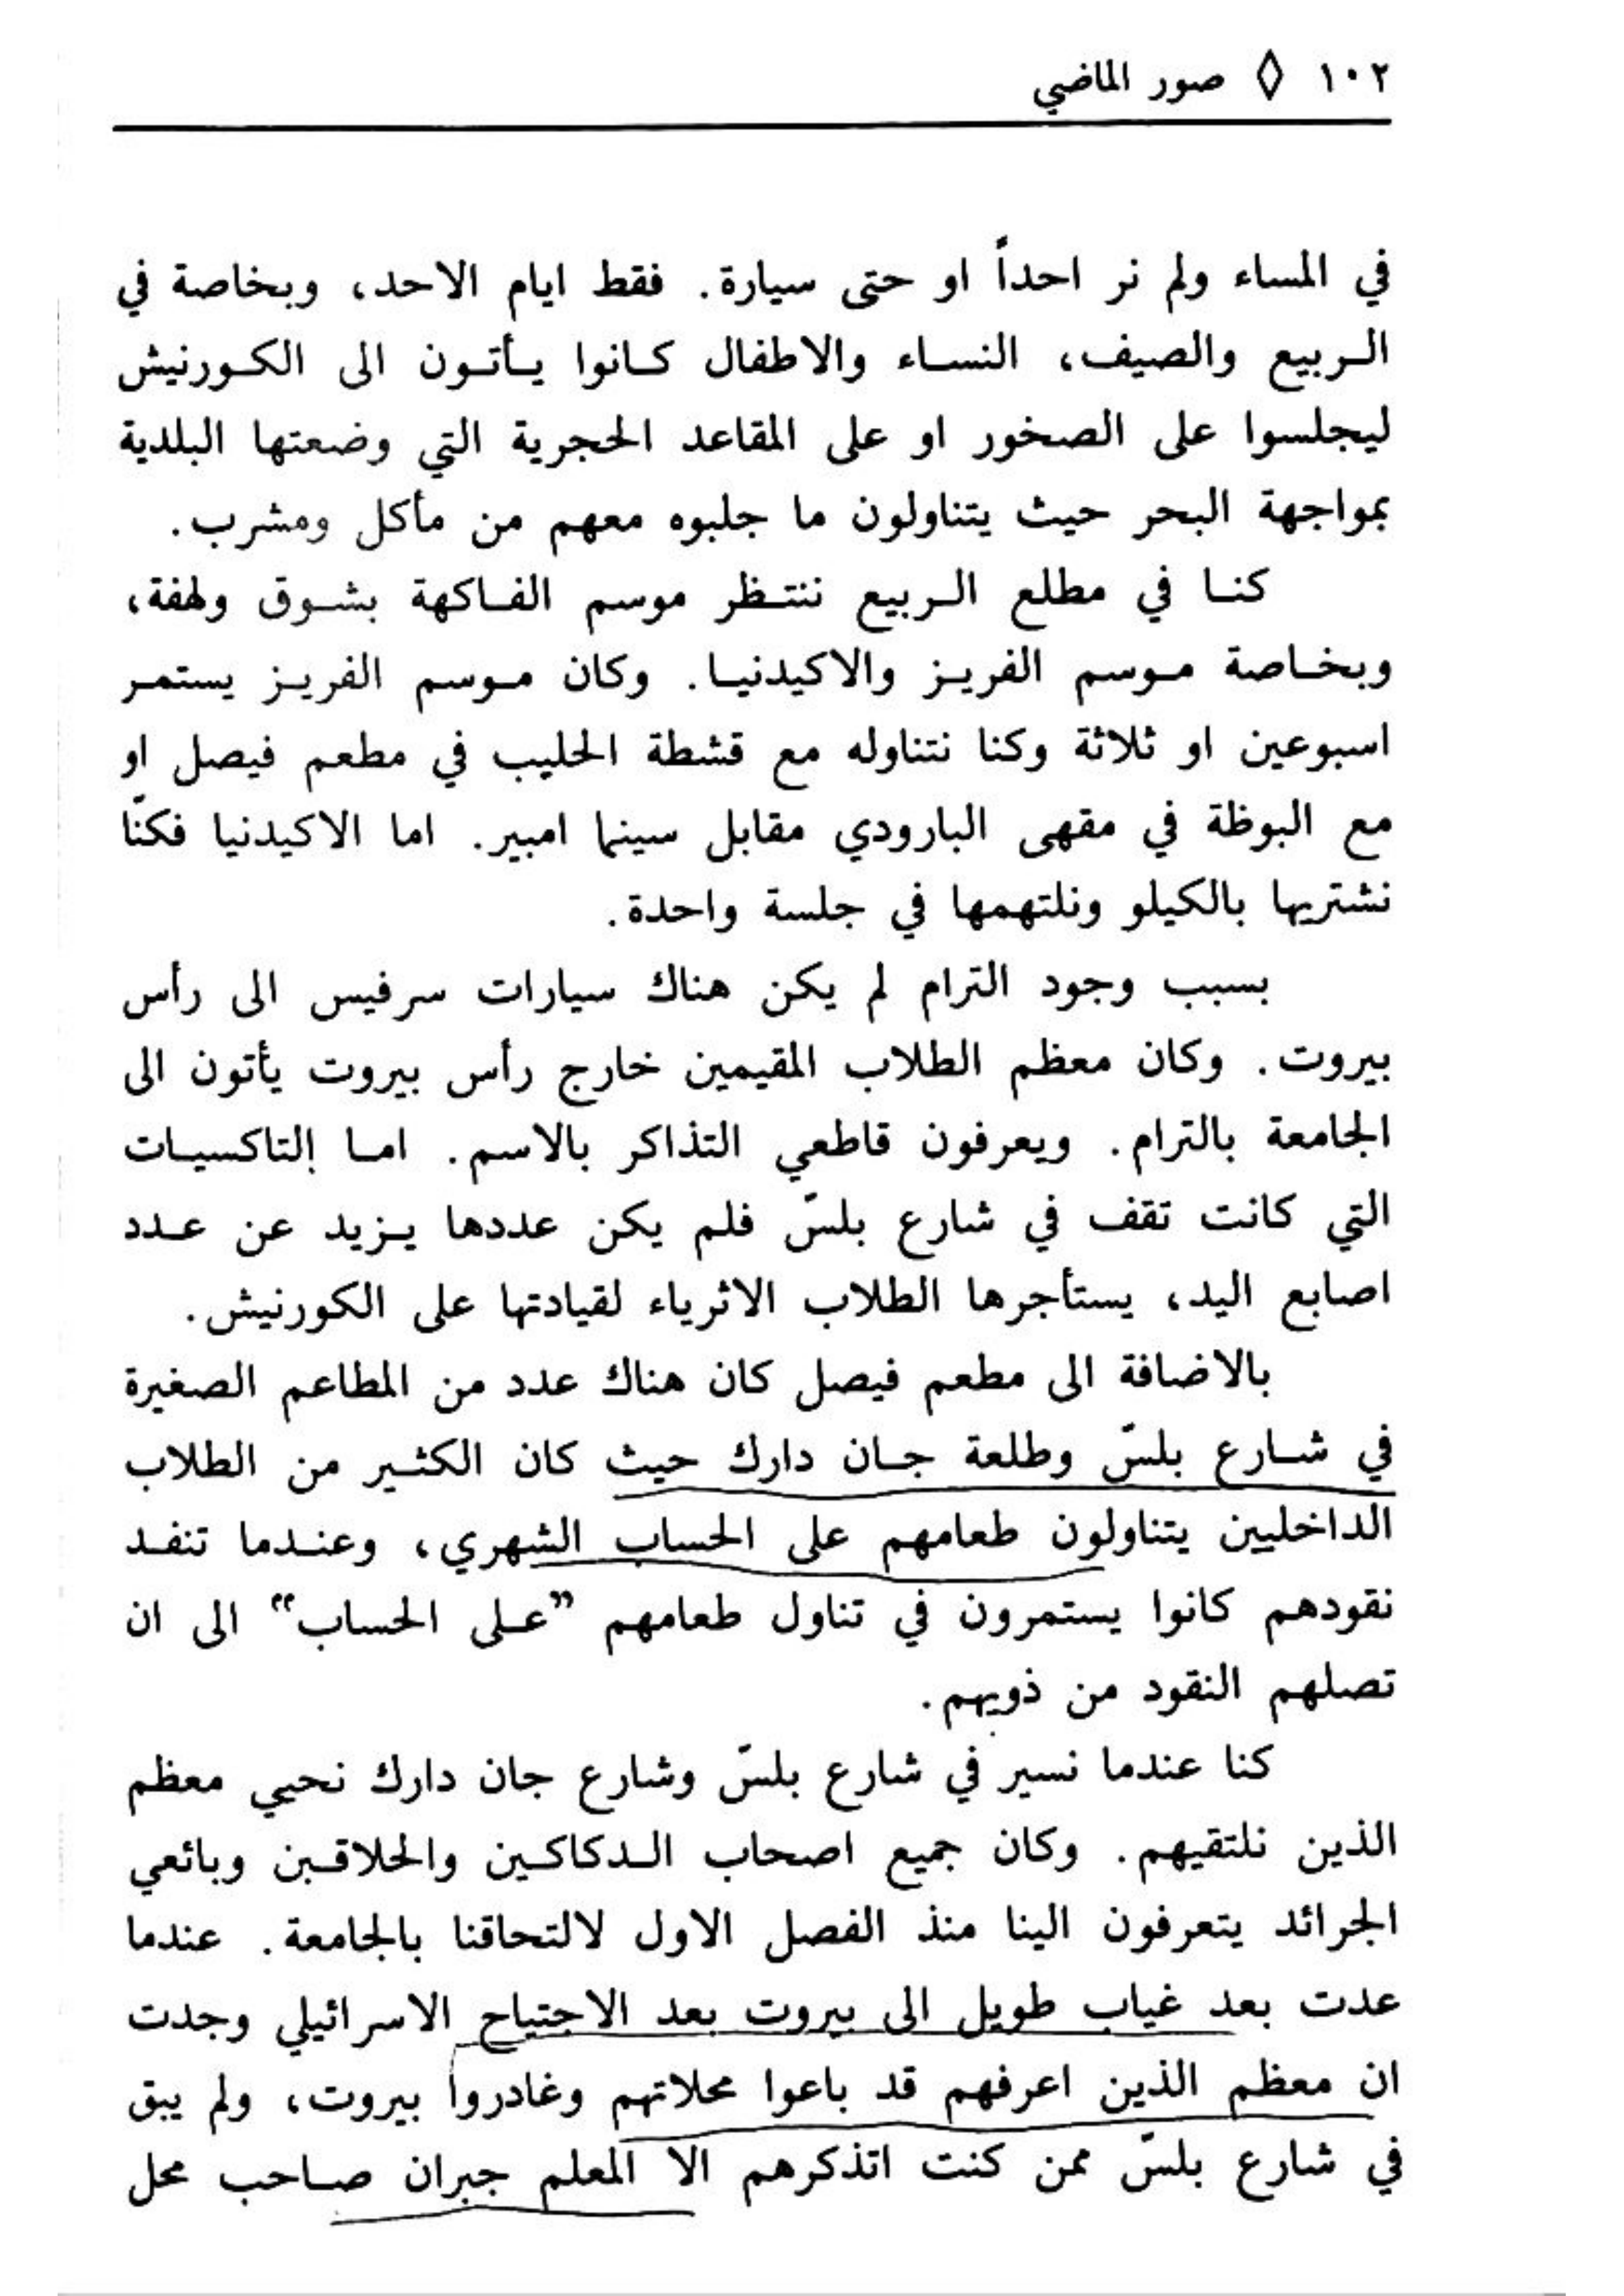 ١٠٢ ◊ صور الماضي
في المساء ولم نر احداً او حتى سيارة. فقط ايام الاحد، وبخاصة في
الربيع والصيف، النساء والاطفال كانوا يأتون الى الكورنيش
ليجلسوا على الصخور او على المقاعد الحجرية التي وضعتها البلدية
بمواجهة البحر حيث يتناولون ما جلبوه معهم من مأكل ومشرب.
كنا في مطلع الربيع ننتظر موسم الفاكهة بشوق ولهفة،
وبخاصة موسم الفريز والاكيدنيا. وكان موسم الفريز يستمر
اسبوعين او ثلاثة وكنا نتناوله مع قشطة الحليب في مطعم فيصل او
مع البوظة في مقهى البارودي مقابل سينما امبير. اما الاكيدنيا فكنّا
نشتريها بالكيلو ونلتهمها في جلسة واحدة.
بسبب وجود الترام لم يكن هناك سيارات سرفيس الى رأس
بيروت. وكان معظم الطلاب المقيمين خارج رأس بيروت يأتون الى
الجامعة بالترام. ويعرفون قاطعي التذاكر بالاسم. اما إلتاكسيات
التي كانت تقف في شارع بلسّ فلم يكن عددها يزيد عن عدد
اصابع اليد، يستأجرها الطلاب الاثرياء لقيادتها على الكورنيش.
بالاضافة الى مطعم فيصل كان هناك عدد من المطاعم الصغيرة
في شارع بلسّ وطلعة جان دارك حيث كان الكثير من الطلاب
الداخليين يتناولون طعامهم على الحساب الشهري، وعندما تنفد
نقودهم كانوا يستمرون في تناول طعامهم "على الحساب" الى ان
تصلهم النقود من ذويهم.
كنا عندما نسير في شارع بلسّ وشارع جان دارك نحيي معظم
الذين نلتقيهم. وكان جميع اصحاب الدكاكين والحلاقين وبائعي
الجرائد يتعرفون الينا منذ الفصل الاول لالتحاقنا بالجامعة. عندما
عدت بعد غياب طويل الى بيروت بعد الاجتياح الاسرائيلي وجدت
ان معظم الذين اعرفهم قد باعوا محلاتهم وغادروا بيروت، ولم يبق
في شارع بلسّ ممن كنت اتذكرهم الا المعلم جبران صاحب محل